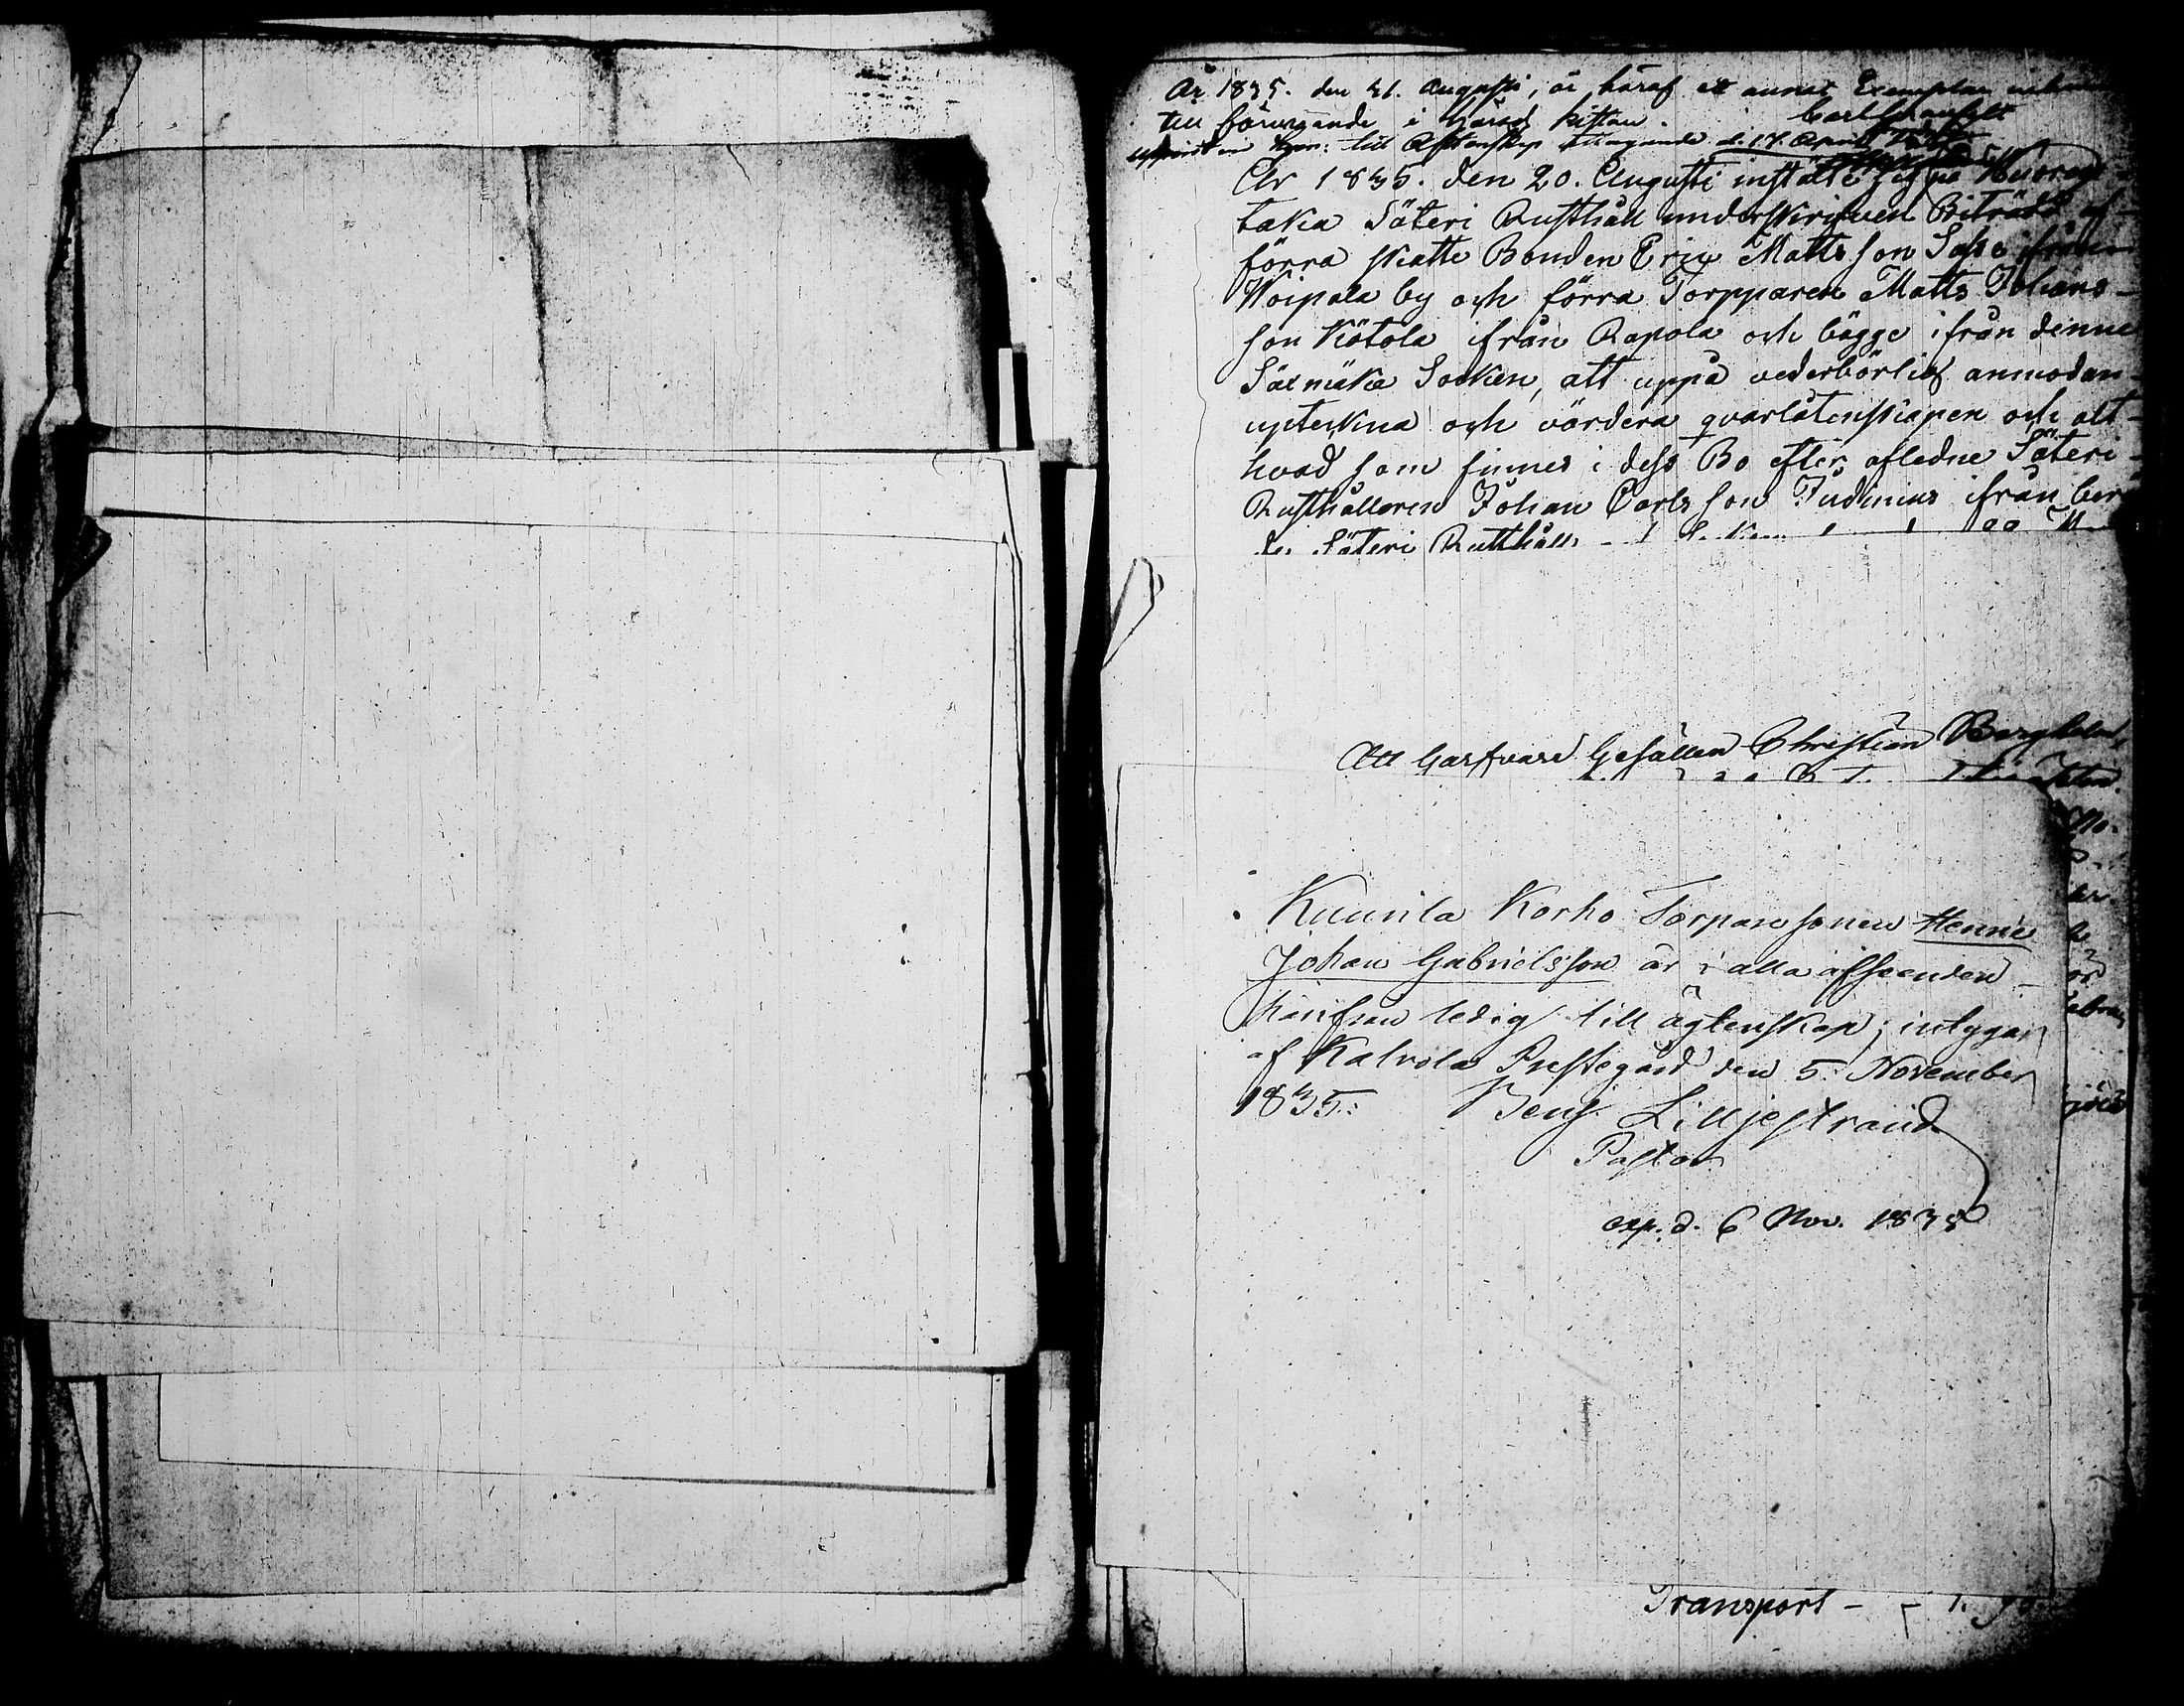 År 1835. den 21. Augusti, är häraf ett annat Exemplar
till förvarande i härads kistan.
till d. 17. April
År 1835. den 20. Augusti instälte sig på
taka Säteri Rusthåll underskrifven Biträdd af
förra skatte Bonden Eric Mattsson Sasse ifrån
Woipala by och förra Torpparen Matts Johans-
son Kötola ifrån Rapola och bägge ifrån denne
Säxmäke Socken, att uppå vederbörlig anmodan
upteckna och värdera qvarlåtenskapen och alt
hvad som finnes i dess Bo efter afledne Säteri
Rusthållaren Johan Carlsson Judinius ifrån
Säteri Rusthåll
Att Garfvare Gesällen Christian
Kuurila Korho Torparesonen Henric
Johan Gabrielsson är i alla afseenden
härifrån ledig till ägtenskap; intygar
af Kalvola Prestegård den 5 November
1835: Benj. Lilljestrand
Pastor
exp. d. 6 Nov. 1835
Transport - - 1.